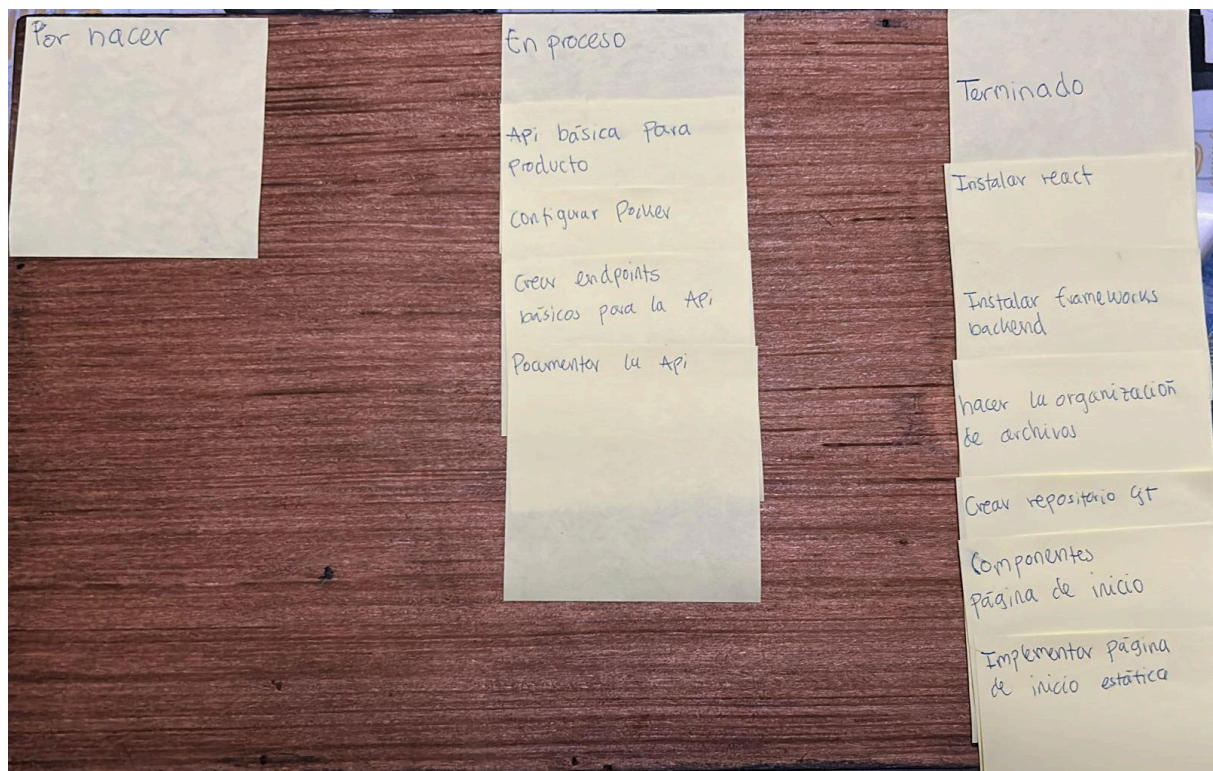 Por hacer
En proceso
Api básica para
producto
configurar Docker
Crear endpoints
básicos para la Api
Documentar la Api
Terminado
Instalar react
Instalar frameworks
backend
hacer la organización
de archivos
Crear repositorio git
Componentes
página de inicio
Implementar página
de inicio estática